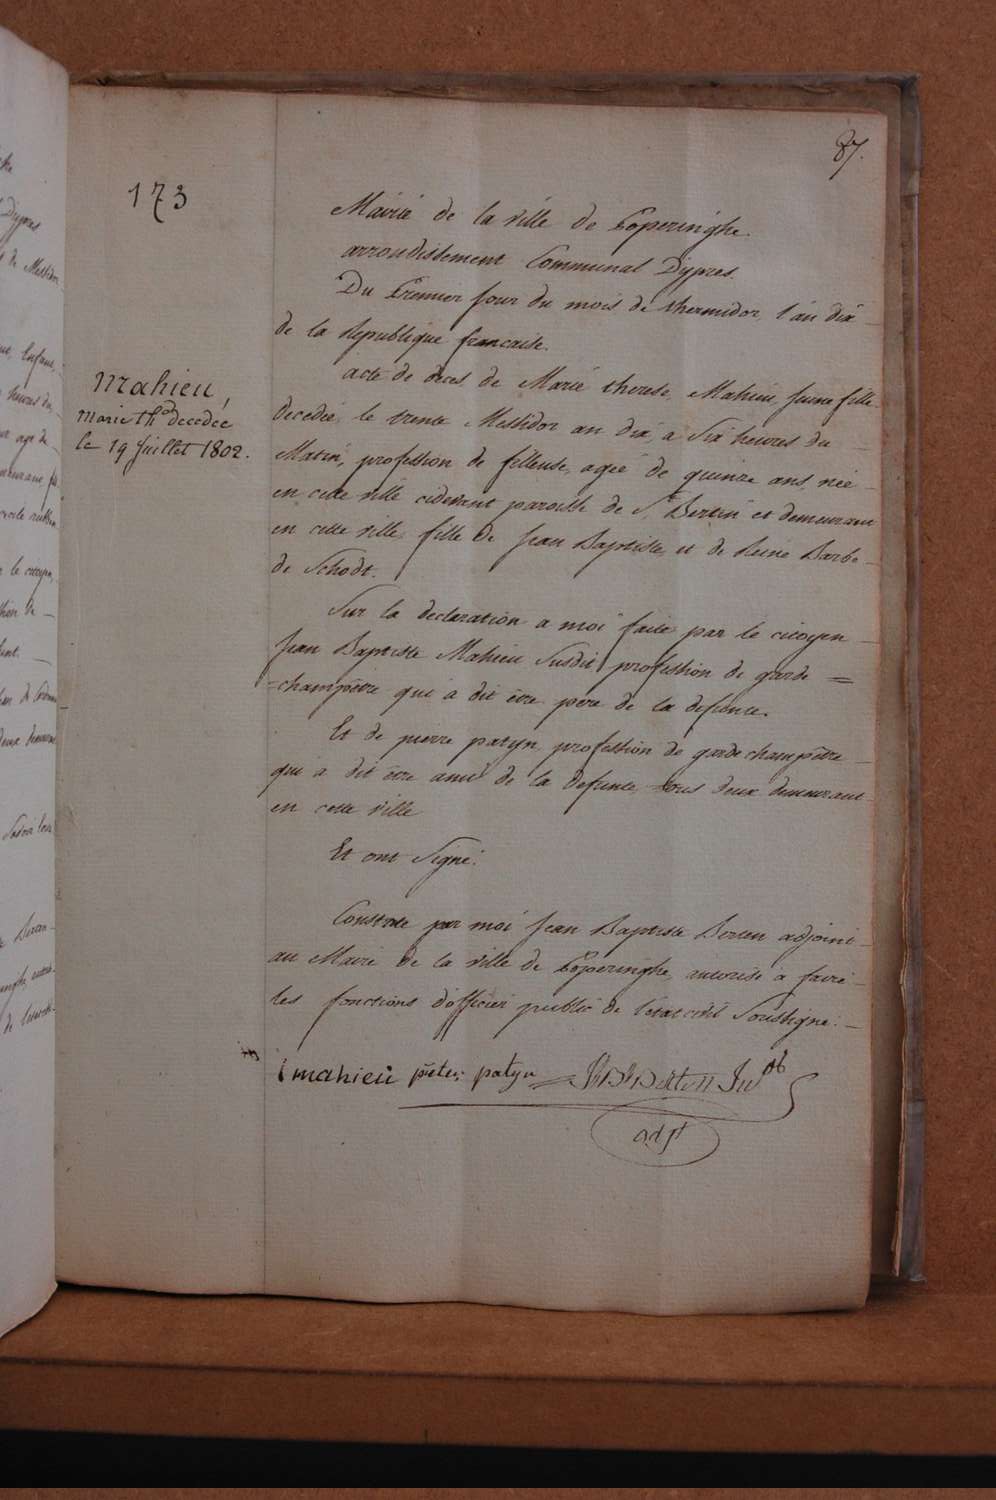 87.
173
Mairie de la ville de Poperinghe.
arrondissement Communal Dÿpres.
Du Premier jour du mois de thermidor, l'an dix
de la Republique francaise.
acte de deces de Marie therese Mahieu, jeune fille
decedée, le trente Messidor an dix, a Six heures du
Matin, profession de fileuse, ageé de quinze ans, neé
en cette ville cidevant paroisse de St Bertin et demeurant
en cette ville, fille de Jean Baptiste, et de Reine Barbe
de Schodt.
Mahieu,
marie th. decedée
le 19 juillet 1802.
Sur la declaration a moi faite par le citoyen
Jean Baptiste Mahieu Susdit profession de garde =
=champêtre qui a dit être pere de la defunte.
Et de pierre patyn, profession de garde champêtre
qui a dit être ami de la defunte, tous deux demeurant
en cette ville
Et ont Signé.
Constaté par moi Jean Baptiste Berten adjoint
au Maire de la ville de Poperinghe, autorisé a faire
les fonctions d'officier public de l'etat civil Soussigné.
mahieu pieter patyn Berten
adjt